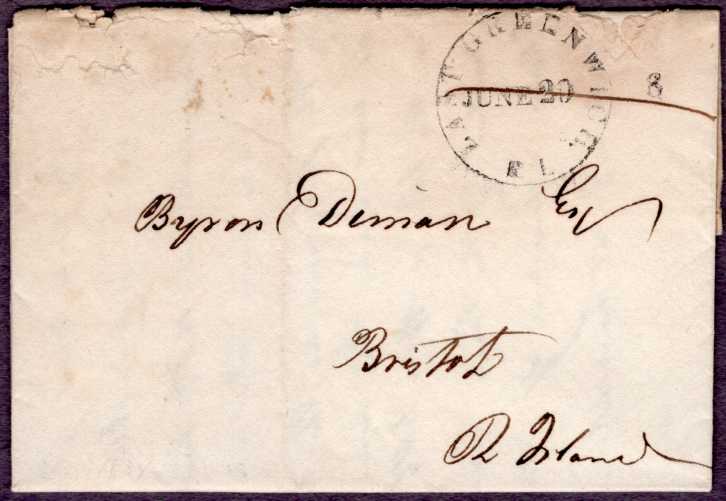 EAST GREENWICH
R I
JUNE 20
Byron Diman Esq
Bristol
R Island